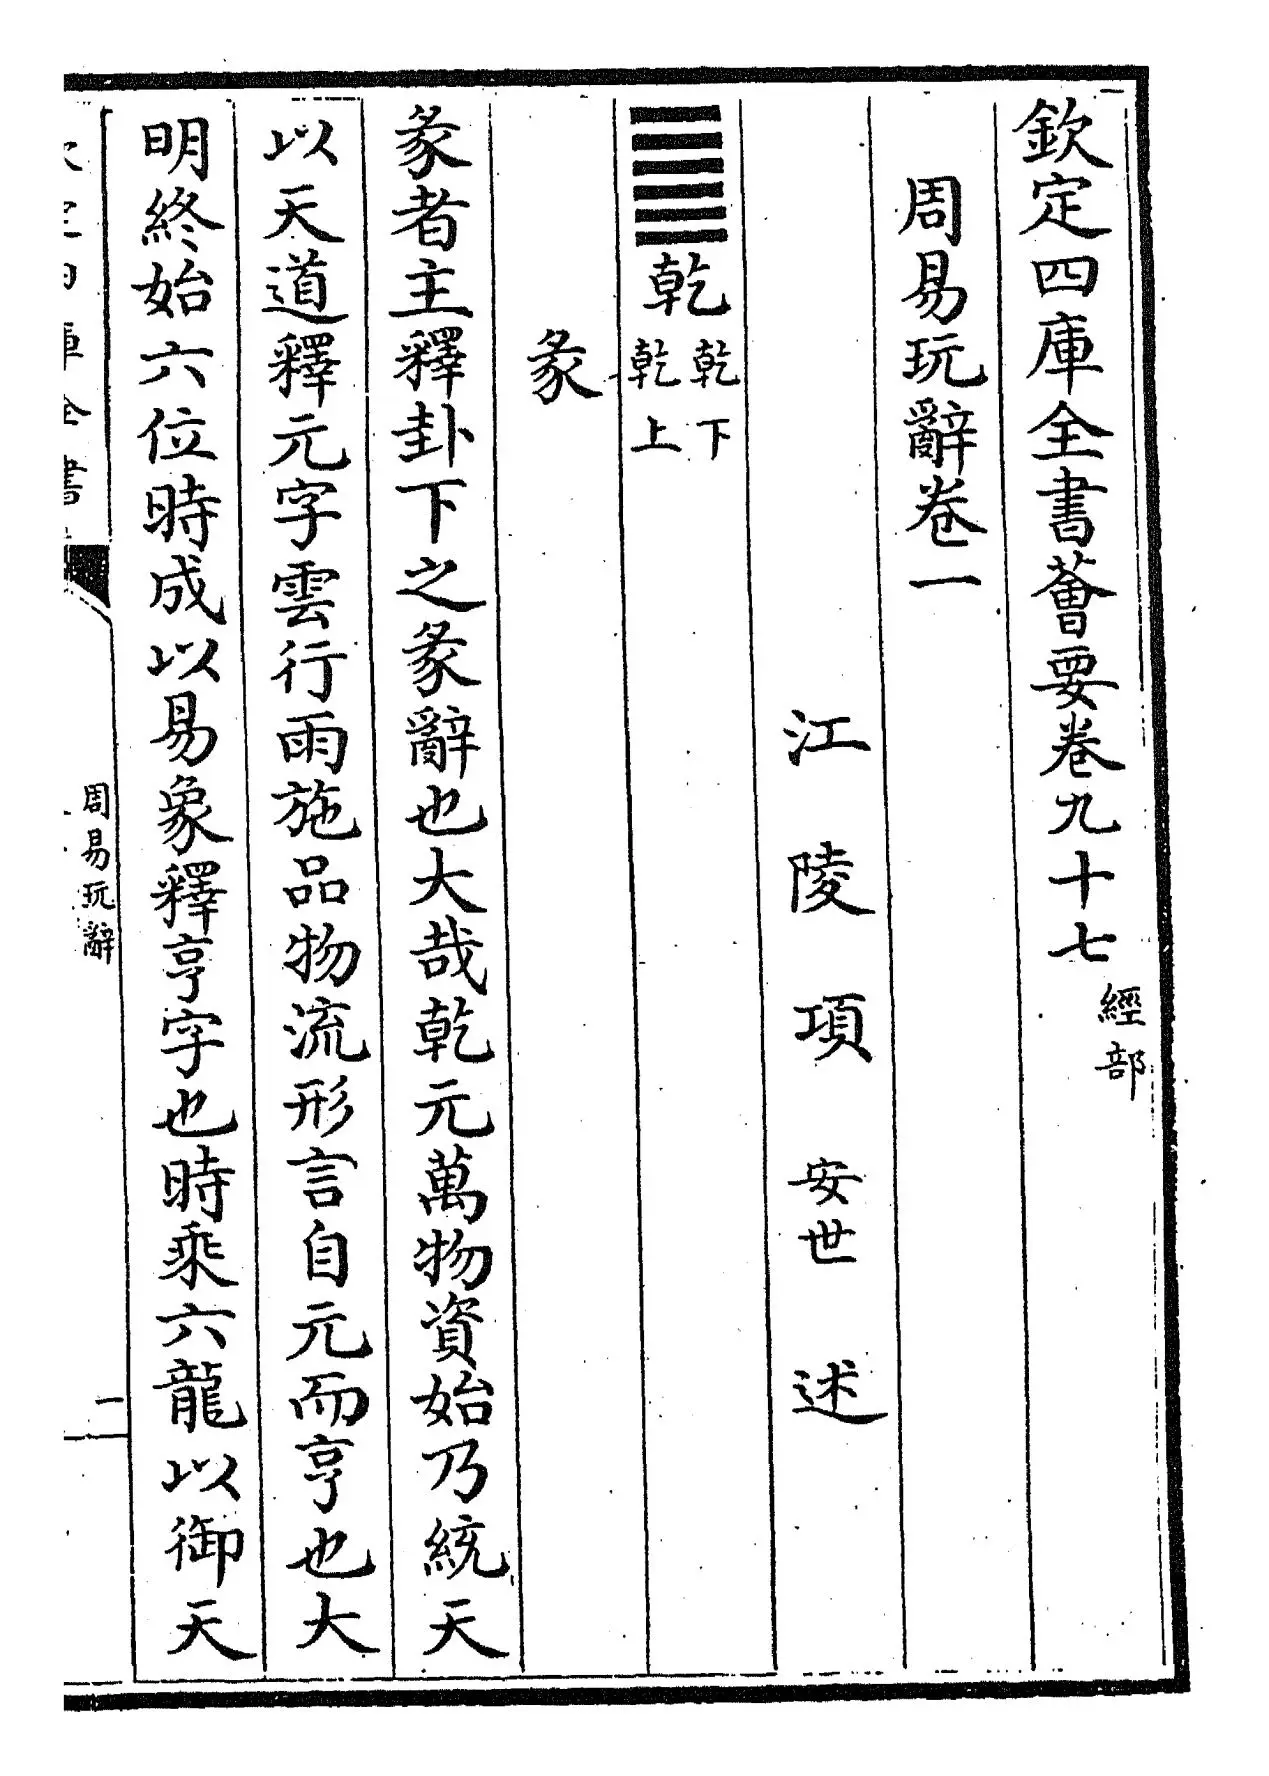 欽定四庫全書薈要卷九十七 經部
周易玩辭卷一
江陵項安世述
䷀乾 乾下
乾上
彖
彖者主釋卦下之彖辭也大哉乾元萬物資始乃統天
以天道釋元字雲行雨施品物流形言自元而亨也大
明終始六位時成以易象釋亨字也時乘六龍以御天
周易玩辭
一